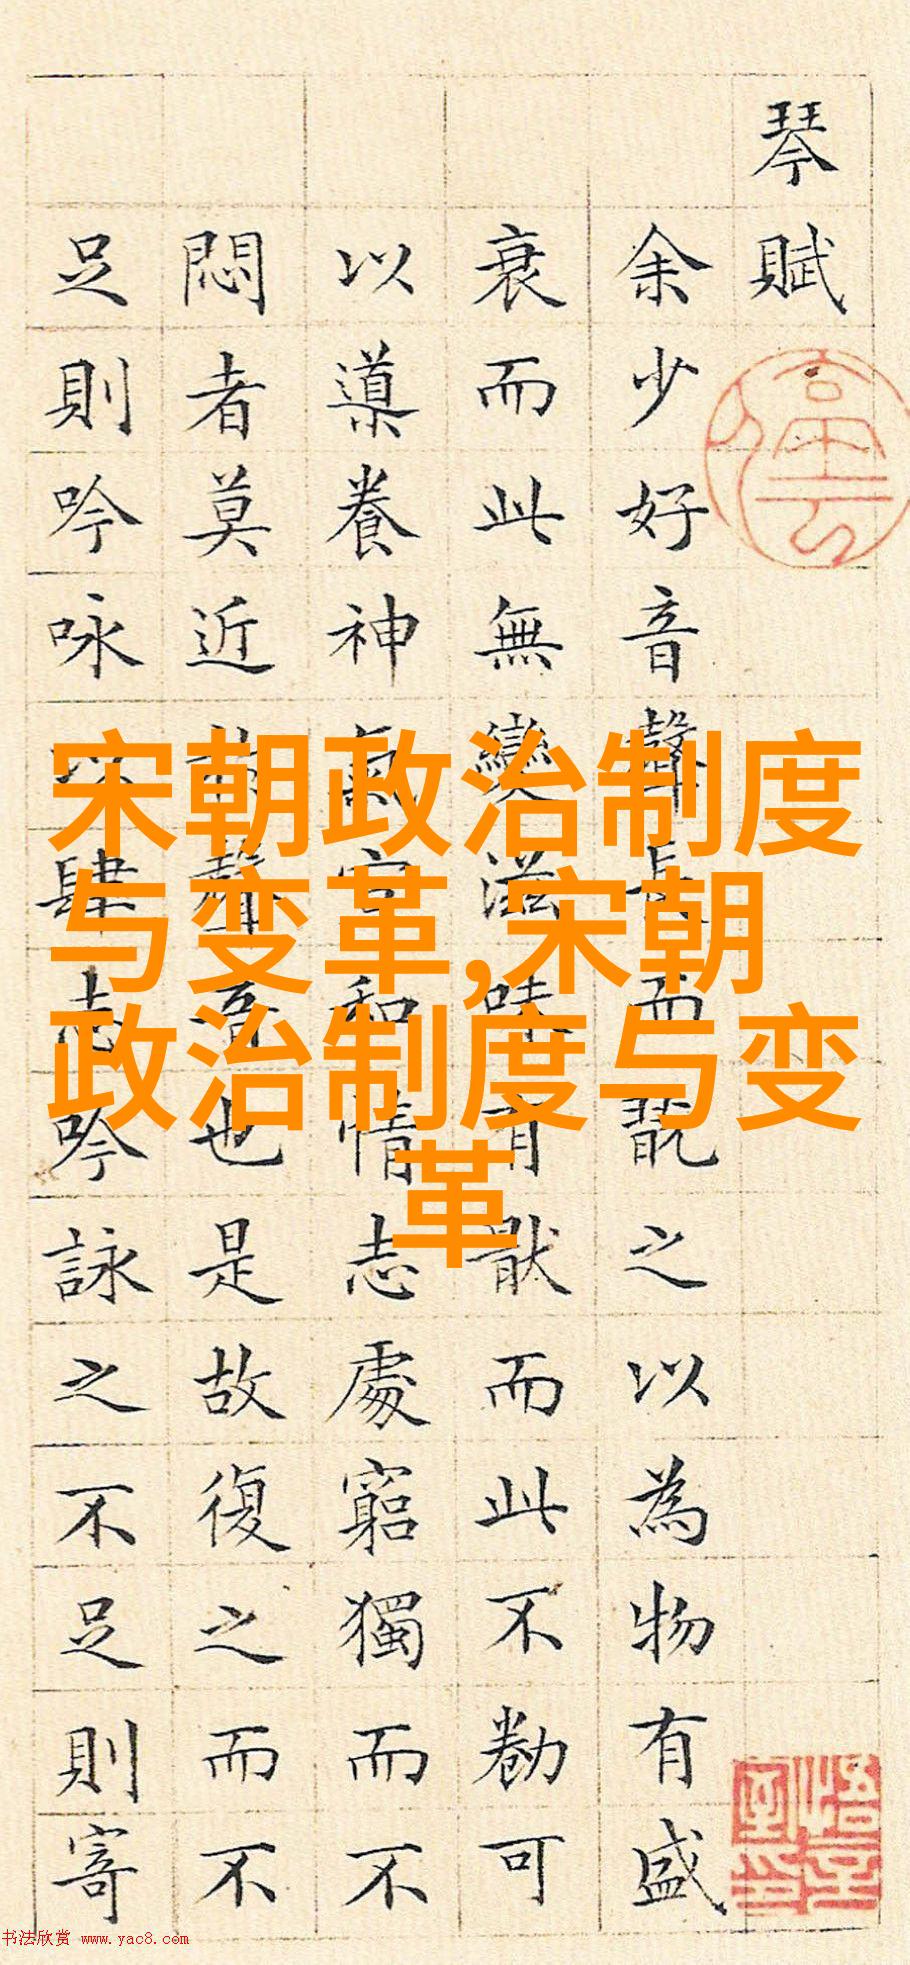 琴賦
余少好音聲長而翫之以為物有盛
衰而此無變滋味有猒而此不勌可
以導養神氣宣和情志處窮獨而不
悶者莫近於聲音也是故復之而不
足則吟咏以肆志吟詠之不足則寄
宋朝政治制度
与变革,宋朝
政治制度与变
革
书法欣赏 www.yac8.com